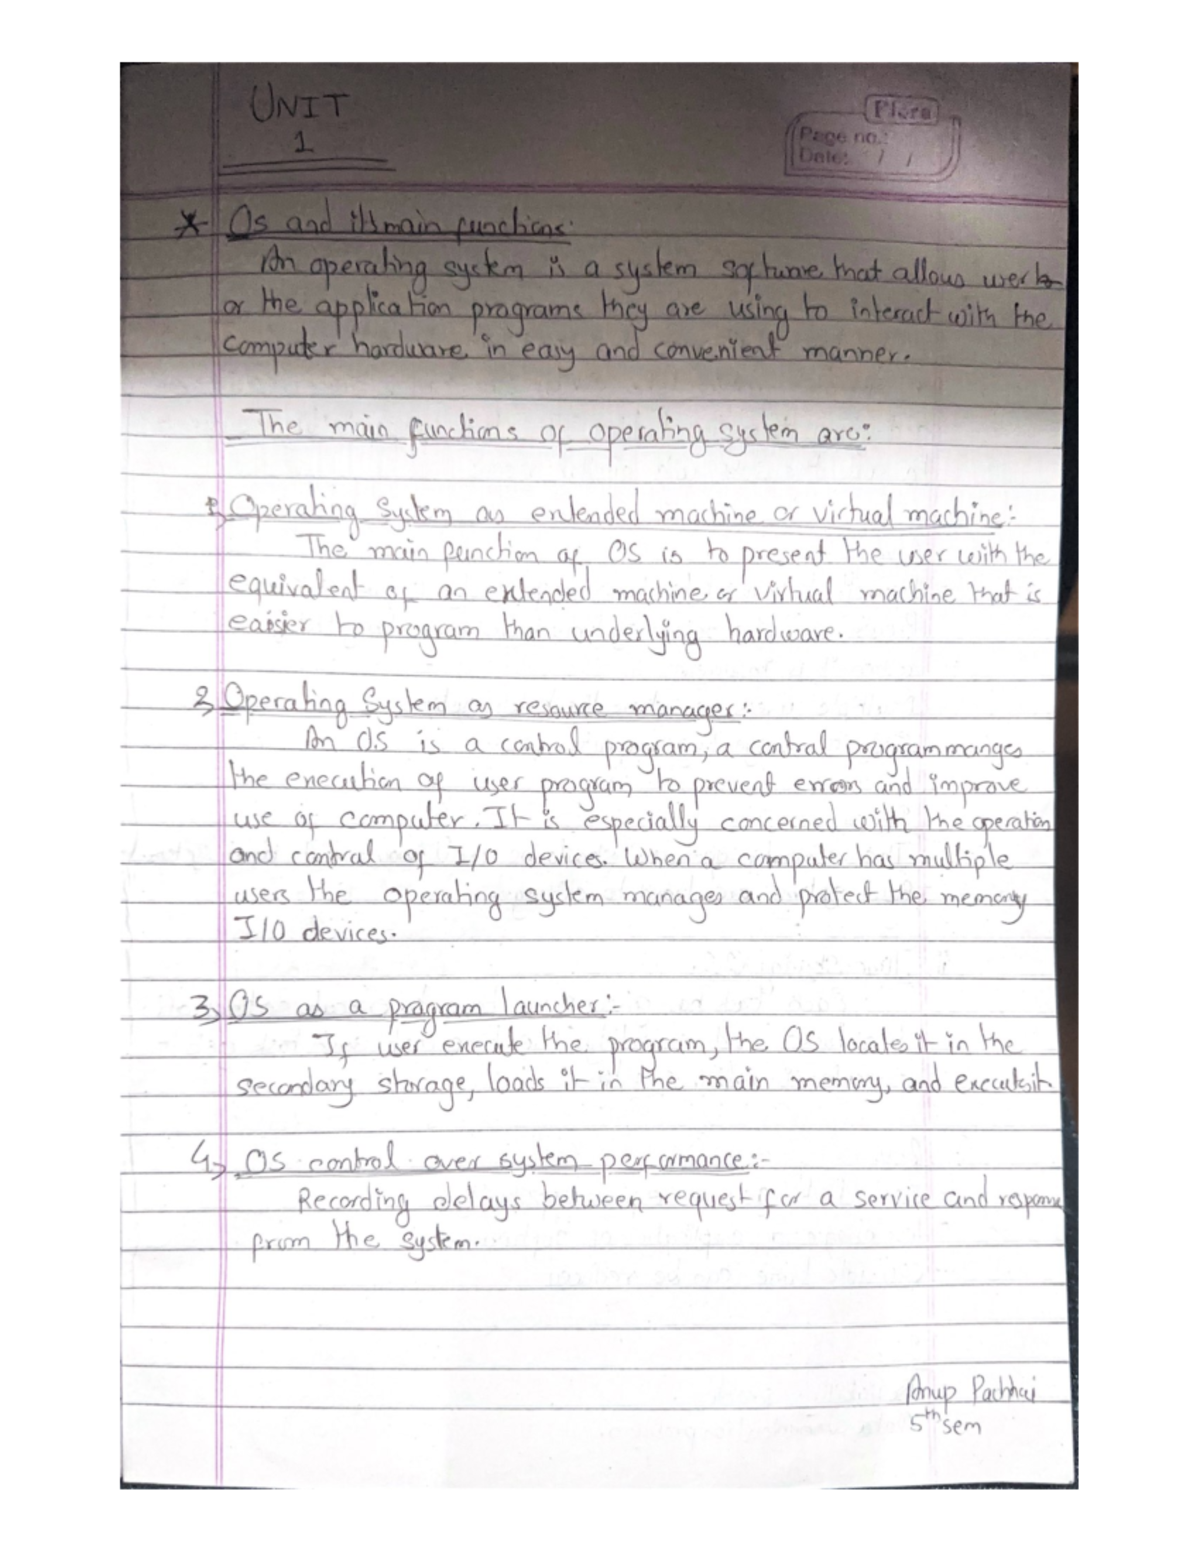 UNIT
1
Flora
Page no.:
Date: / /
* Os and its main functions:
An operating system is a system software that allows user
or the application programs they are using to interact with the
computer hardware in easy and convenient manner.
The main functions of operating system are:
Operating System as extended machine or virtual machine:-
The main function of OS is to present the user with the
equivalent of an extended machine or virtual machine that is
easier to program than underlying hardware.
2) Operating System as resource manager:-
An O.S is a control program, a control program manges
the execution of user program to prevent errors and improve
use of computer. It is especially concerned with the operation
and control of I/O devices. When a computer has multiple
users the operating system manages and protect the memory
I/O devices.
3) OS as a program launcher:-
If user execute the program, the OS locates it in the
secondary storage, loads it in the main memory, and excutsit
4) OS control over system performance:-
Recording delays between request for a service and response
from the system.
Anup Pachhai
5th sem